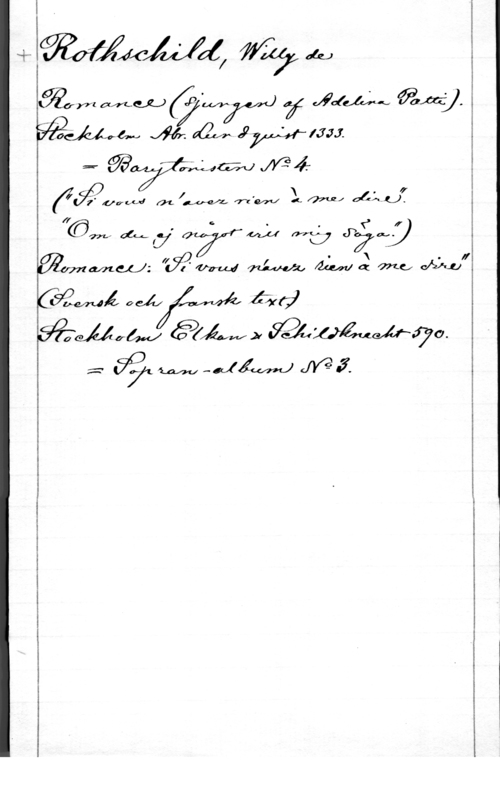 + Rothschild, Willy de
Romance (sjungen af Adelina Patti).
Stockholm Abr. Lundquist 1333.
= Barytonisten № 4.
("Si vous n'avez rien à me dire".
"Om du ej något vill mig säga.")
Romance: "Si vous n'avez rien à me dire"
(Svensk och fransk text)
Stockholm Elkan & Schildknecht 590.
= Sopran-album № 3.